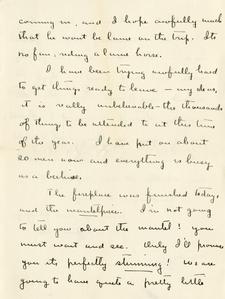 coming in, and I hope awfully much
that he won't be lame on the trip. Its
no fun, riding a lame horse.
I have been trying awfully hard
to get things ready to leave - my dear,
it is really unbelievable - the thousands
of things to be attended to at this time
of the year. I have put on about
20 men now and everything is busy
as a beehive.
The fireplace was finished today,
and the mantelpiece. I'm not going
to tell you about the mantel! you
must wait and see. Only I'll promise
you its perfectly stunning! We are
going to have quite a pretty little